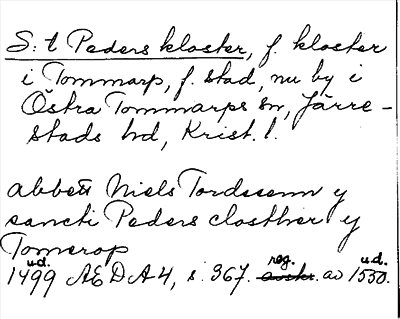 S:t Peders kloster, f. kloster
i Tommarp, f. stad, nu by i
Östra Tommarps sn, Järre-
stads hd, Krist. l.
abbett Niels Tordssenn y
sancti Peders closther y
Tomerop
u.d. reg. u.d.
1499 AEDA4, s. 367. av 1550.